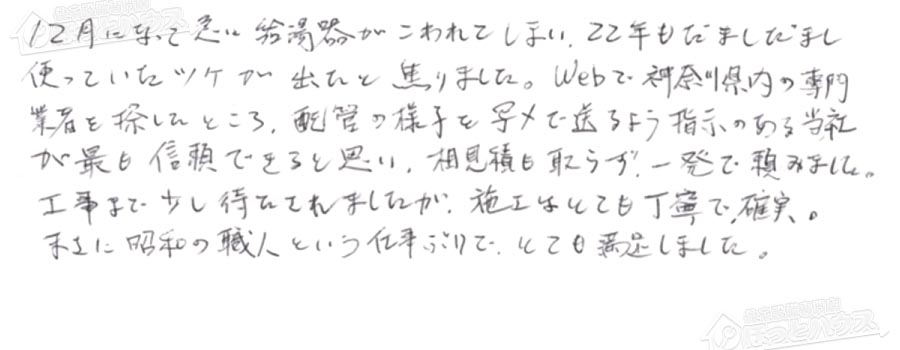 12月になって急に給湯器がこわれてしまい、22年もだましだまし
使っていたツケが出たと焦りました。Webで神奈川県内の専門
業者を探したところ、配管の様子を写メで送るよう指示のある当社
が最も信頼できると思い、相見積も取らず、一発で頼みました。
工事まで少し待たされましたが、施工はとても丁寧で、確実。
まさに昭和の職人という仕事ぶりで、とても満足しました。
ほっとハウス